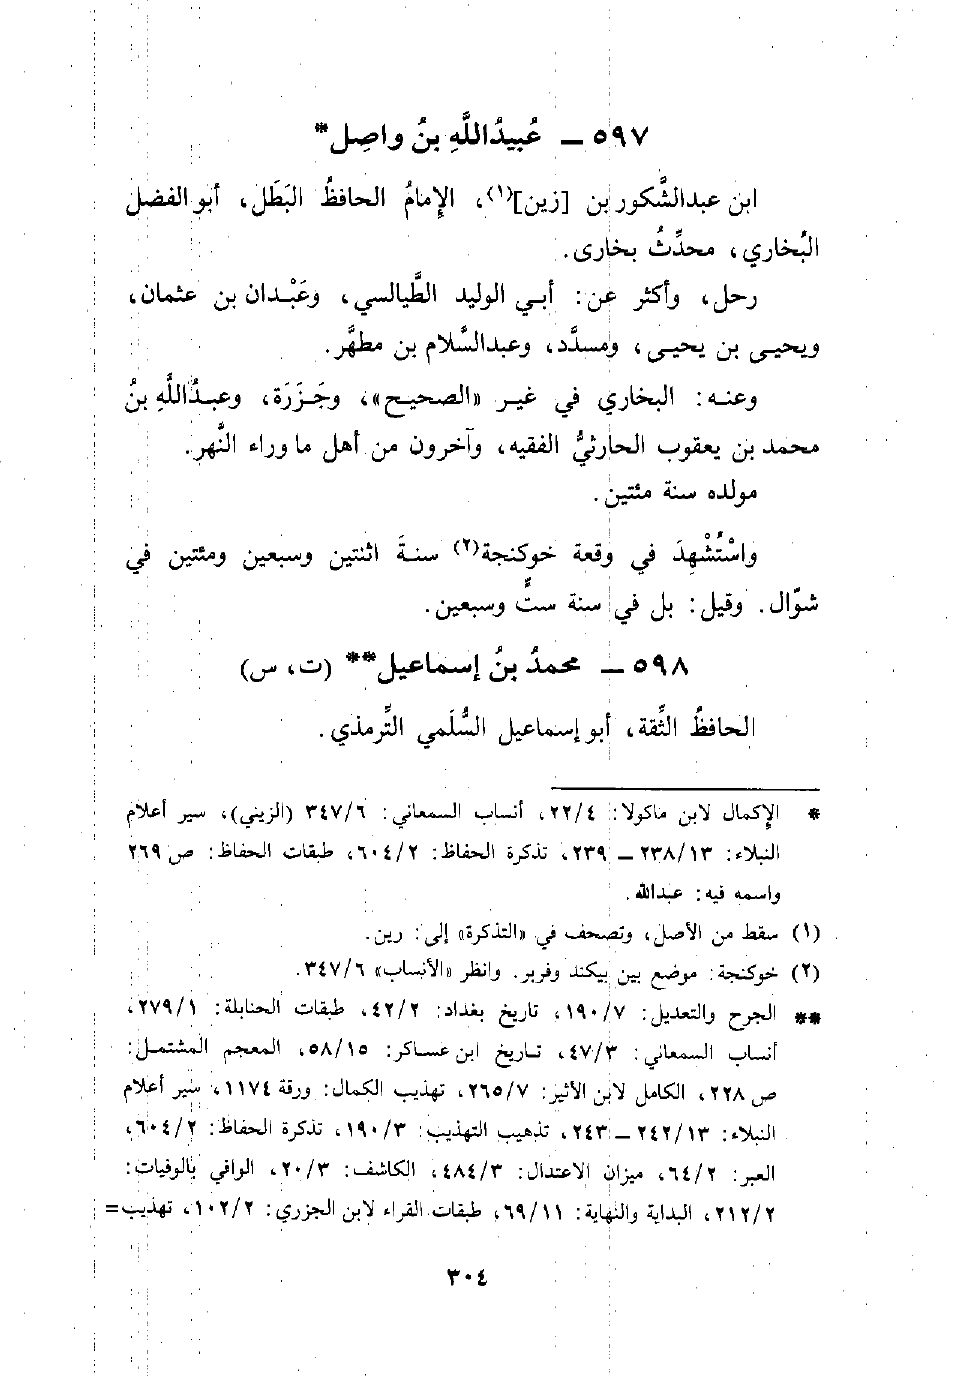 ٥٩٧ ــ عُبيدُاللَّهِ بنُ واصِل*
ابن عبدالشَّكور بن [زين](١)، الإِمامُ الحافظُ البَطَل، أبو الفضل
البُخاري، محدِّثُ بخارى.
رحل، وأكثر عن: أبي الوليد الطَّيالسي، وعَبْدان بن عثمان،
ويحيى بن يحيى، ومسدَّد، وعبدالسَّلام بن مطهَّر.
وعنه: البخاري في غير «الصحيح»، وجَزَرَة، وعبدُاللَّهِ بنُ
محمد بن يعقوب الحارثيُّ الفقيه، وآخرون من أهل ما وراء النَّهر.
مولده سنة مئتين.
واسْتُشْهِدَ في وقعة خوكنجة(٢) سنةَ اثنتين وسبعين ومئتين في
شوَّال. وقيل: بل في سنة ستٍّ وسبعين.
٥٩٨ ــ محمدُ بنُ إسماعيل** (ت، س)
الحافظُ الثِّقة، أبو إسماعيل السُّلَمي التِّرمذي.
* الإِكمال لابن ماكولا: ٢٢/٤، أنساب السمعاني: ٣٤٧/٦ (الزيني)، سير أعلام
النبلاء: ٢٣٨/١٣ ــ ٢٣٩، تذكرة الحفاظ: ٦٠٤/٢، طبقات الحفاظ: ص ٢٦٩
واسمه فيه: عبدالله.
(١) سقط من الأصل، وتصحف في «التذكرة» إلى: رين.
(٢) خوكنجة: موضع بين بيكند وفربر. وانظر «الأنساب» ٣٤٧/٦.
** الجرح والتعديل: ١٩٠/٧، تاريخ بغداد: ٤٢/٢، طبقات الحنابلة: ٢٧٩/١،
أنساب السمعاني: ٤٧/٣، تاريخ ابن عساكر: ٥٨/١٥، المعجم المشتمل:
ص ٢٢٨، الكامل لابن الأثير: ٢٦٥/٧، تهذيب الكمال: ورقة ١١٧٤، سير أعلام
النبلاء: ٢٤٢/١٣ ــ ٢٤٣، تذهيب التهذيب: ١٩٠/٣، تذكرة الحفاظ: ٦٠٤/٢،
العبر: ٦٤/٢، ميزان الاعتدال: ٤٨٤/٣، الكاشف: ٢٠/٣، الوافي بالوفيات:
٢١٢/٢، البداية والنهاية: ٦٩/١١، طبقات القراء لابن الجزري: ١٠٢/٢، تهذيب=
٣٠٤